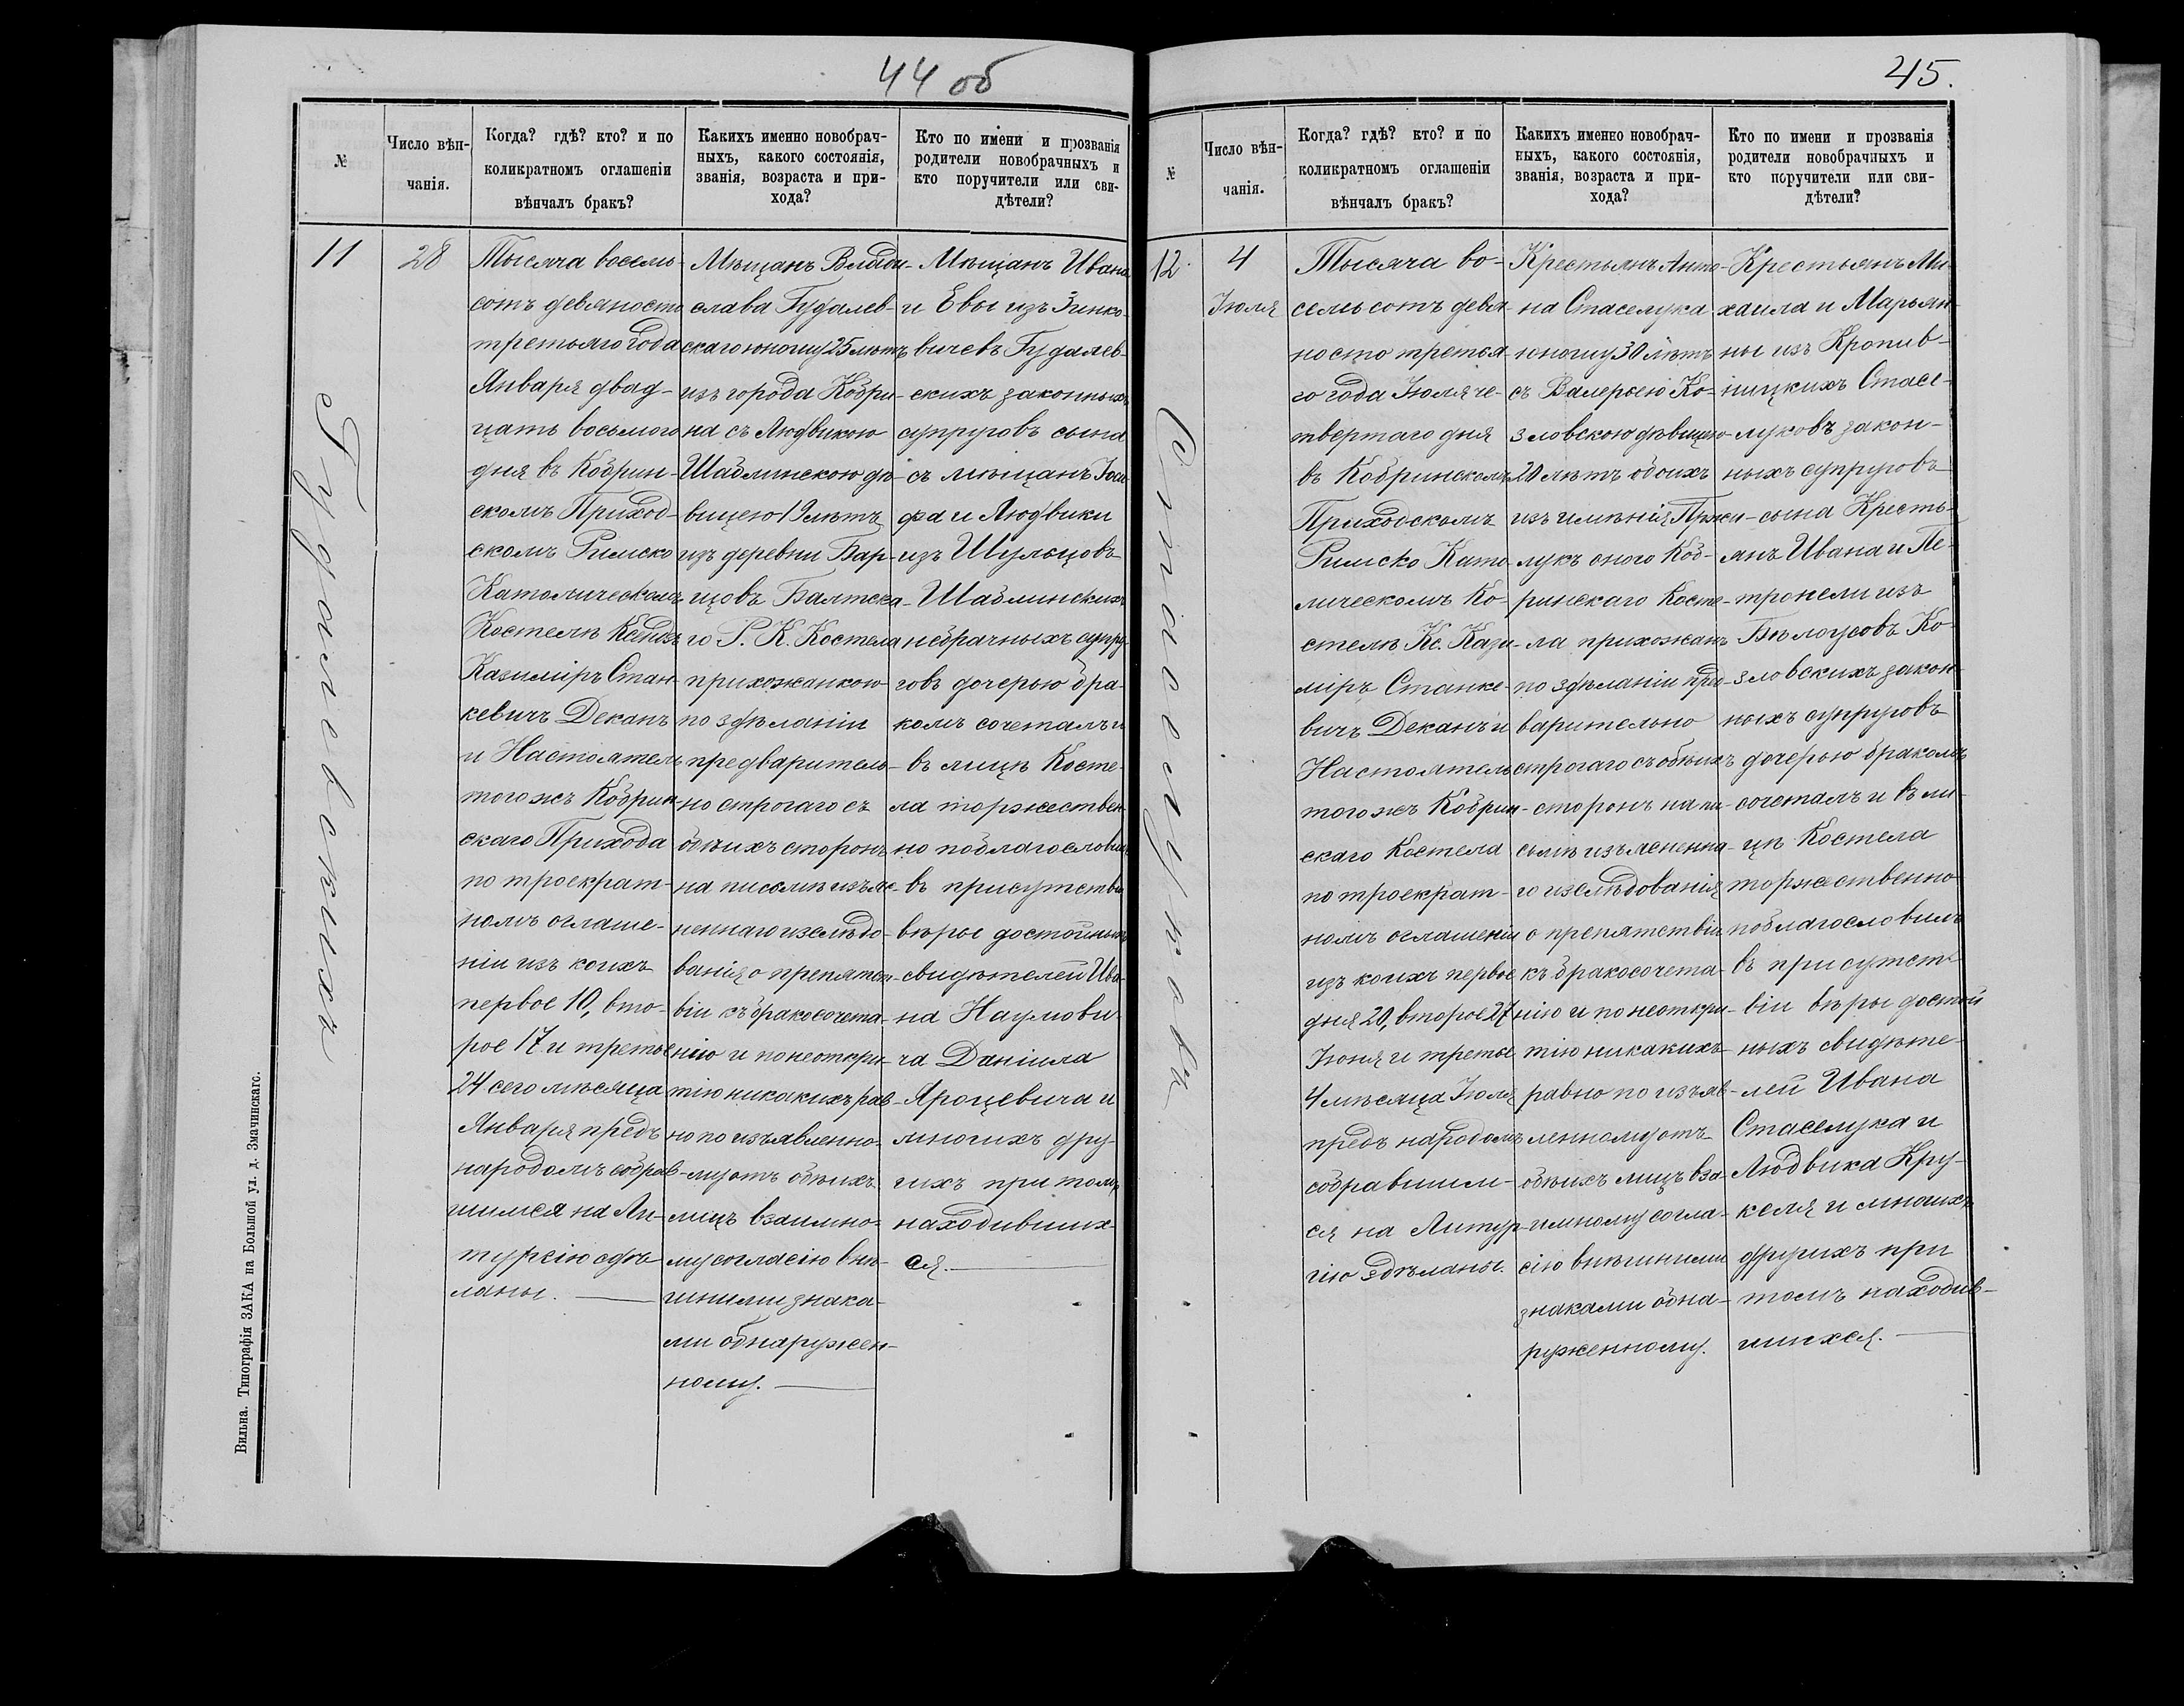 44 об
№
Число вѣн-
чанія.
Когда? гдѣ? кто? и по
коликратномъ оглашеніи
вѣнчалъ бракъ?
Какихъ именно новобрач-
ныхъ, какого состоянія,
званія, возраста и при-
хода?
Кто по имени и прозванія
родители новобрачныхъ и
кто поручители или сви-
дѣтели?
11
28
Гудалевскихъ
Тысяча восемь-
сотъ девяносто
третьяго года
Января двад-
цать восьмого
дня въ Кобрин-
скомъ Приход-
скомъ Римско
Католическомъ
Костелѣ Ксёндзъ
Казиміръ Стан-
кевичъ Деканъ
и Настоятель
того жъ Кобрин-
скаго Прихода
по троекрат-
номъ оглаше-
ніи изъ коихъ
первое 10, вто-
рое 17 и третье
24 сего мѣсяца
Января предъ
народомъ собрав-
шимся на Ли-
тургію сдѣ-
ланы.
Мѣщанъ Влади-
слава Гудалев-
скаго юношу 25 лѣтъ
изъ города Кобри-
на съ Людвикою
Шаблинскою дѣ-
вицею 19 лѣтъ
изъ деревни Бар-
щовъ
го Р. К. Костела
прихожанкою
по здѣланіи
предваритель-
но строгаго съ
обѣихъ сторонъ
на письмѣ изъяс-
неннаго изслѣдо-
ванія о препятст-
віи къ бракосочета-
нію и по неоткры-
тію никакихъ рав-
но по изъявленно-
му отъ обѣихъ
лицъ взаимно-
му согласію внѣ-
шними знака-
ми обнаружен-
ному.
Мѣщанъ Ивана
и Евы изъ Зинке-
вичевъ Гудалев-
скихъ законныхъ
супруговъ сына
съ мѣщанъ Іоси-
фа и Людвики
изъ Шульцовъ
Шаблинскихъ
и брачныхъ супру-
говъ дочерью бра-
комъ сочеталъ и
въ лицѣ Косте-
ла торжествен-
но поблагословилъ
въ присутствіи
вѣры достойныхъ
свидѣтелей Ива-
на Наумови-
ча Даніила
Яроцевича и
многихъ дру-
гихъ при томъ
находивших-
ся.
Вильна. Типографія ЗАКА на Большой ул. д. Змачинскаго.
45.
№
Число вѣн-
чанія.
Когда? гдѣ? кто? и по
коликратномъ оглашеніи
вѣнчалъ бракъ?
Какихъ именно новобрач-
ныхъ, какого состоянія,
званія, возраста и при-
хода?
Кто по имени и прозванія
родители новобрачныхъ и
кто поручители или сви-
дѣтели?
12.
4
Іюля
Стаселуковъ
Тысяча во-
семь сотъ девя-
носто третья-
го года Іюля че-
твертаго дня
въ Кобринскомъ
Приходскомъ
Римско Като-
лическомъ Ко-
стелѣ Кс. Кази-
міръ Станке-
вичъ Деканъ и
Настоятель
того жъ Кобрин-
скаго Костела
по троекрат-
номъ оглашеніи
изъ коихъ первое
дня 20, второе 27
Іюня и третье
4 мѣсяца Іюля
предъ народомъ
собравшим-
ся на Литур-
гію здѣланы.
Крестьянъ Анто-
на Стаселука
юношу 30 лѣтъ
съ Валерьею Ко-
зловскою дѣвицею
20 лѣтъ обоихъ
изъ имѣнія Пржи-
лукъ оного Коб-
ринскаго Косте-
ла прихожанъ
по здѣланіи пред-
варительно
строгаго съ обѣихъ
сторонъ на пи-
сьмѣ изъясненна-
го изслѣдованія
о препятствіи
къ бракосочета-
нію и по неоткры-
тію никакихъ
равно по изъяв-
ленному отъ
обѣихъ лицъ вза-
имному согла-
сію внѣшними
знаками обна-
руженному.
Крестьянъ Ми-
хаила и Марьян-
ны изъ Кропив-
ницкихъ Стасе-
луковъ закон-
ныхъ супруговъ
сына Кресть-
янъ Ивана и Пе-
тронели изъ
Бѣлоусовъ Ко-
зловскихъ закон-
ныхъ супруговъ
дочерью бракомъ
сочеталъ и въ ли-
цѣ Костела
торжественно
поблагословилъ
въ присутст-
віи вѣры достой-
ныхъ свидѣте-
лей Ивана
Стаселука и
Людвика Кру-
келя и многихъ
другихъ при
томъ находив-
шихся.